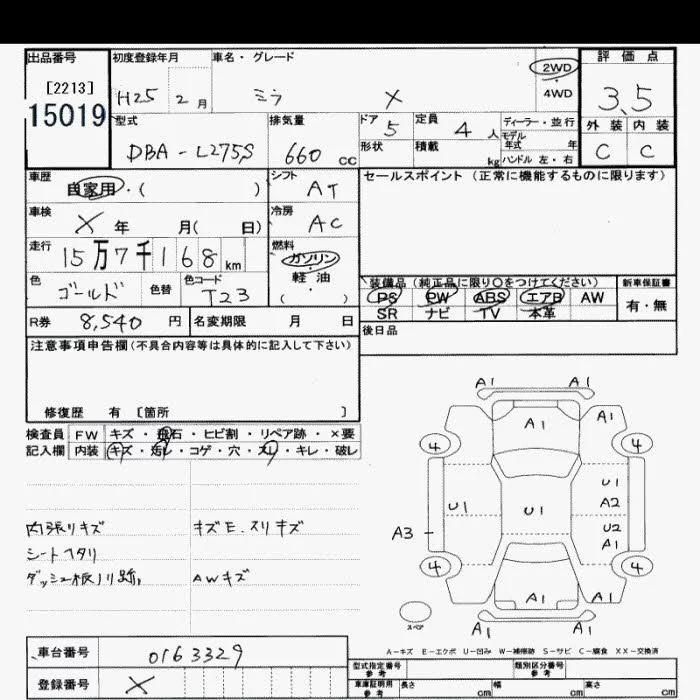 出品番号
[2213]
15019
初度登録年月
H25 2 月
車名・グレード
ミラ X
2WD
4WD
評価点
3.5
外装 内装
C C
型式
DBA-L275S
排気量
660 cc
ドア
5
形状
定員
4 人
積載
kg
ディーラー・並行
モデル年式 年
ハンドル 左・右
車歴
自家用・( )
シフト
AT
車検
X 年 月( 日)
冷房
AC
走行
15万7千168 km
燃料
ガソリン
軽・油
( )
色
ゴールド
色替
色コード
T23
R券 8,540 円
名変期限 月 日
セールスポイント(正常に機能するものに限ります)
装備品(純正品に限り○をつけてください)
PS PW ABS エアB AW
SR ナビ TV 本革
新車保証書
有・無
後日品
注意事項申告欄(不具合内容等は具体的に記入して下さい)
修復歴 有 [箇所 ]
検査員 FW キズ・飛石・ヒビ割・リペア跡・×要
記入欄 内装 キズ・汚レ・コゲ・穴・スレ・キレ・破レ
内張リキズ
シートヘタリ
ダッシュ板ノリ跡,
キズE.スリキズ
AWキズ
A1 A1
A1 A1
4 4
U1
U1
U1
A2
U2
A1
A3
4 4
A1 A1
A1 A1
スペア
A-キズ E-エクボ U-凹み W-補修跡 S-サビ C-腐食 XX-交換済
車台番号 0163329
登録番号 X
型式指定番号 参考
類別区分番号 参考
車庫証明用 参考 長さ cm 幅 cm 高さ cm